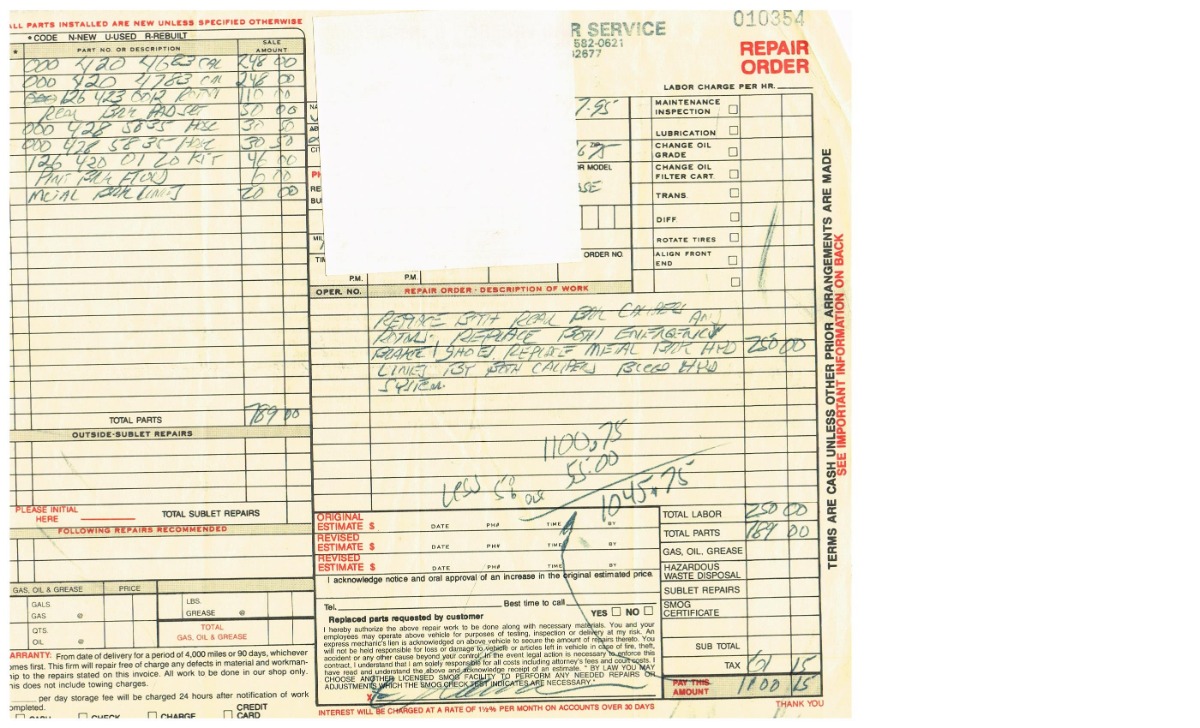 ALL PARTS INSTALLED ARE NEW UNLESS SPECIFIED OTHERWISE
* CODE N-NEW U-USED R-REBUILT
* PART NO. OR DESCRIPTION SALE AMOUNT
000 420 4683 CAL 248 00
000 420 4783 CAL 248 00
126 423 0012 ROTOR 110 00
REAR BRK PAD SET 50 00
000 428 5835 HOSE 30 50
000 428 5835 HOSE 30 50
126 420 01 20 KIT 46 00
PINT BRK FLUID 6 00
METAL BRK LINES 20 00
TOTAL PARTS 789 00
OUTSIDE-SUBLET REPAIRS
PLEASE INITIAL
HERE
TOTAL SUBLET REPAIRS
FOLLOWING REPAIRS RECOMMENDED
GAS, OIL & GREASE PRICE
GALS.
GAS @
LBS.
GREASE @
QTS.
OIL @
TOTAL
GAS, OIL & GREASE
WARRANTY: From date of delivery for a period of 4,000 miles or 90 days, whichever
comes first. This firm will repair free of charge any defects in material and workman-
ship to the repairs stated on this invoice. All work to be done in our shop only.
This does not include towing charges.
per day storage fee will be charged 24 hours after notification of work
completed.
CASH CHECK CHARGE CREDIT CARD
R SERVICE
582-0621
2677
010354
REPAIR
ORDER
LABOR CHARGE PER HR.
7.95
MAINTENANCE
INSPECTION
LUBRICATION
CHANGE OIL
GRADE
CHANGE OIL
FILTER CART.
TRANS.
DIFF
ROTATE TIRES
ALIGN FRONT
END
ZIP
R MODEL
ORDER NO.
P.M. P.M.
OPER. NO. REPAIR ORDER - DESCRIPTION OF WORK
REPLACE BOTH REAR BRK CALIPERS AND
ROTORS. REPLACE BOTH EMERGENCY
BRAKE SHOES. REPLACE METAL BRK HYD 250 00
LINES BY BOTH CALIPERS BLEED HYD
SYSTEM.
1100.75
55.00
LESS 5%
1045.75
ORIGINAL
ESTIMATE $ DATE PH# TIME BY
REVISED
ESTIMATE $ DATE PH# TIME BY
REVISED
ESTIMATE $ DATE PH# TIME BY
I acknowledge notice and oral approval of an increase in the original estimated price.
Tel. Best time to call
Replaced parts requested by customer YES NO
I hereby authorize the above repair work to be done along with necessary materials. You and your
employees may operate above vehicle for purposes of testing, inspection or delivery at my risk. An
express mechanic's lien is acknowledged on above vehicle to secure the amount of repairs thereto. You
will not be held responsible for loss or damage to vehicle or articles left in vehicle in case of fire, theft,
accident or any other cause beyond your control. In the event legal action is necessary to enforce this
contract, I understand that I am solely responsible for all costs including attorney's fees and court costs. I
have read and understand the above and acknowledge receipt of an estimate. " BY LAW YOU MAY
CHOOSE ANOTHER LICENSED SMOG FACILITY TO PERFORM ANY NEEDED REPAIRS OR
ADJUSTMENTS WHICH THE SMOG CHECK TEST INDICATES ARE NECESSARY."
X
TOTAL LABOR 250 00
TOTAL PARTS 789 00
GAS, OIL, GREASE
HAZARDOUS
WASTE DISPOSAL
SUBLET REPAIRS
SMOG
CERTIFICATE
SUB TOTAL
TAX 61 15
PAY THIS
AMOUNT 1100 15
INTEREST WILL BE CHARGED AT A RATE OF 1½% PER MONTH ON ACCOUNTS OVER 30 DAYS
THANK YOU
TERMS ARE CASH UNLESS OTHER PRIOR ARRANGEMENTS ARE MADE
SEE IMPORTANT INFORMATION ON BACK